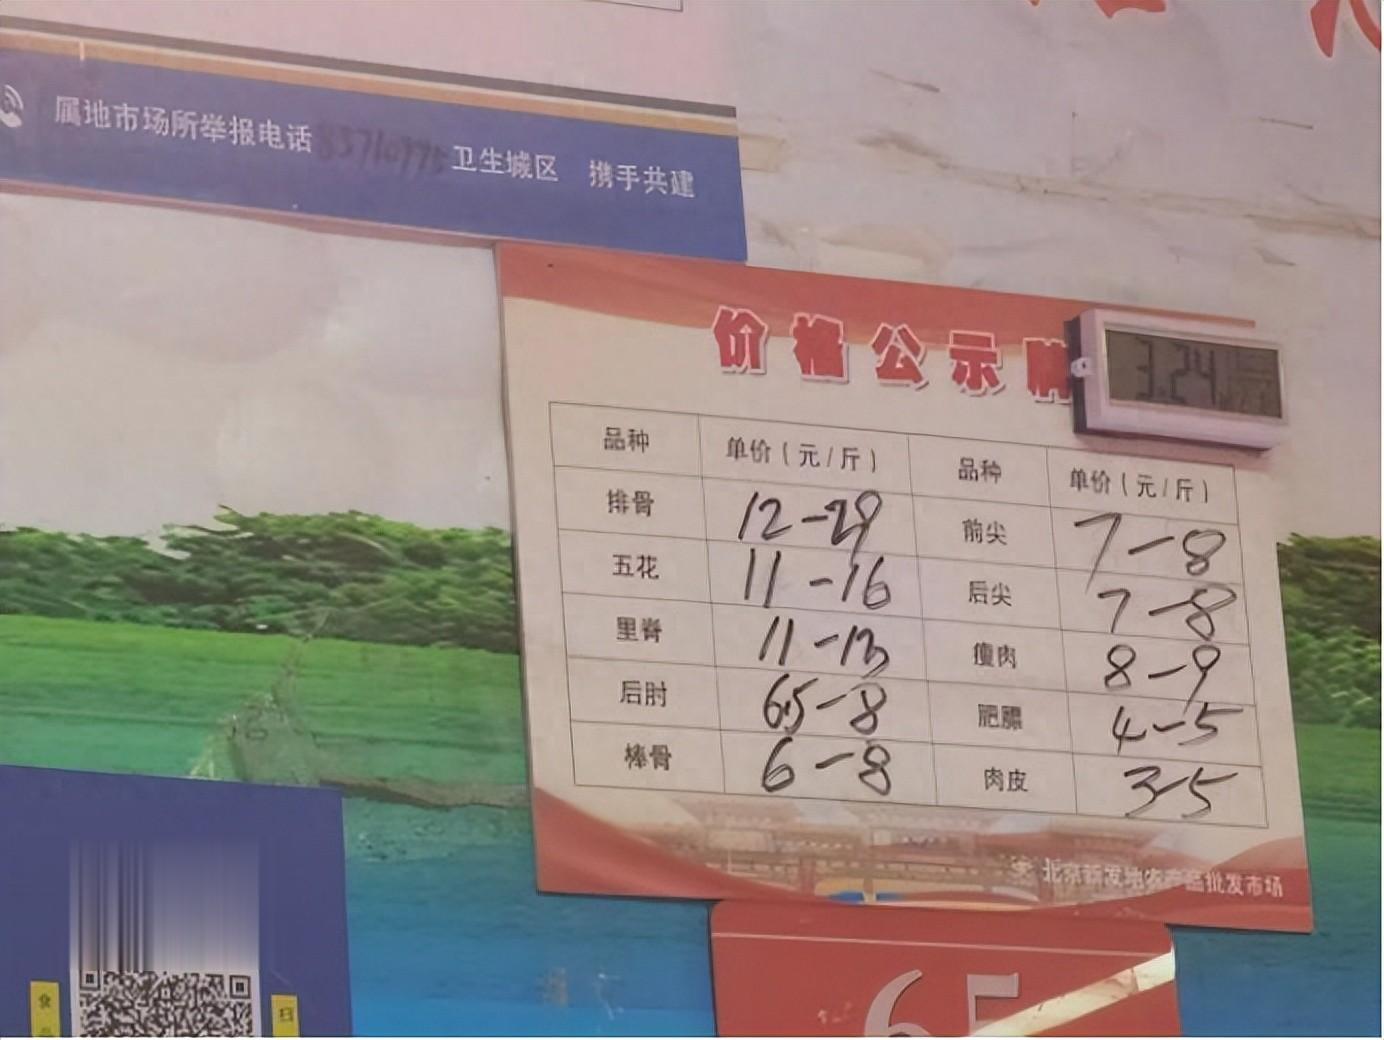 属地市场所举报电话 83710995 卫生城区 携手共建
价格公示牌
3.24
品种 单价（元/斤） 品种 单价（元/斤）
排骨 12-29 前尖 7-8
五花 11-16 后尖 7-8
里脊 11-13 瘦肉 8-9
后肘 6.5-8 肥膘 4-5
棒骨 6-8 肉皮 3-5
北京新发地农产品批发市场
65
食
扫